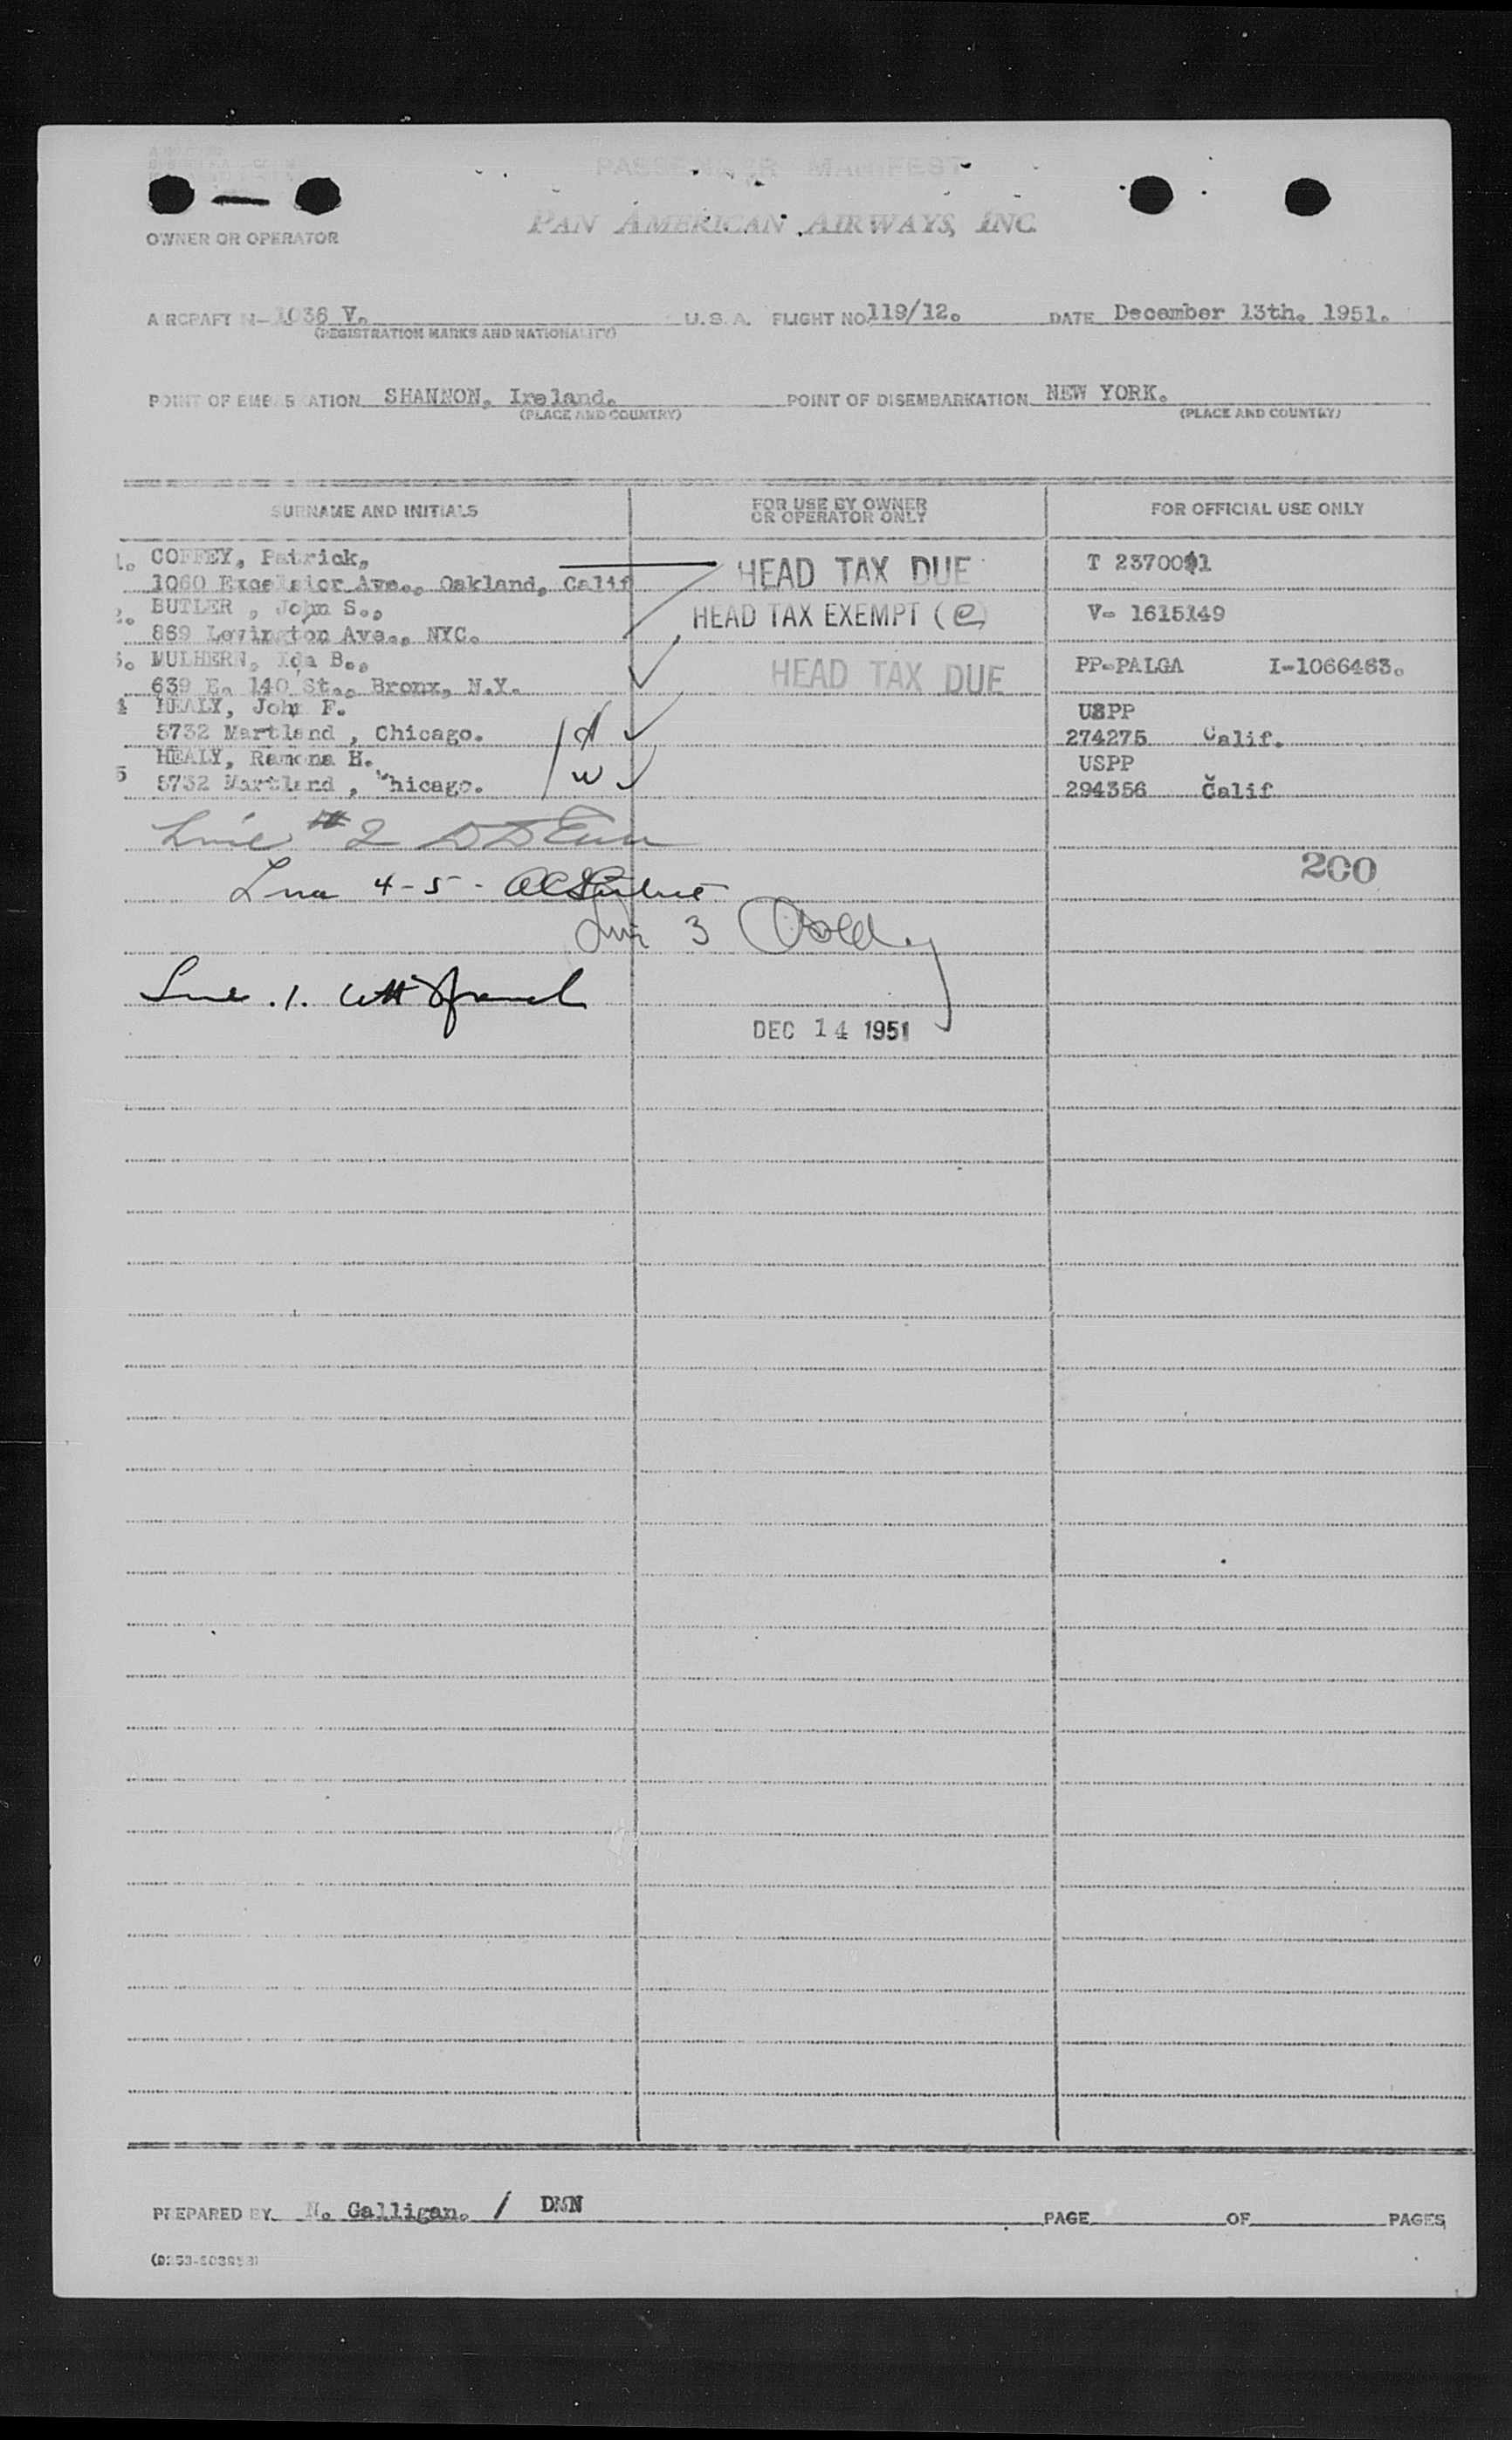 PASSENGER MANIFEST
PAN AMERICAN AIRWAYS, INC.
OWNER OR OPERATOR
AIRCRAFT N-1036 V. U.S.A. FLIGHT NO. 119/12. DATE December 13th. 1951.
(REGISTRATION MARKS AND NATIONALITY)
POINT OF EMBARKATION SHANNON, Ireland. POINT OF DISEMBARKATION NEW YORK.
(PLACE AND COUNTRY) (PLACE AND COUNTRY)
SURNAME AND INITIALS FOR USE BY OWNER OR OPERATOR ONLY FOR OFFICIAL USE ONLY
1. COFFEY, Patrick, HEAD TAX DUE T 2370091
1060 Excelsior Ave., Oakland, Calif
2. BUTLER , John S., HEAD TAX EXEMPT (e) V- 1615149
869 Lexington Ave., NYC.
3. MULHERN, Ida B., HEAD TAX DUE PP-PALGA I-1066463.
639 E. 140 St., Bronx, N.Y.
4 HEALY, John F. USPP
5732 Martland , Chicago. 274275 Calif.
HEALY, Ramona H. USPP
5 5732 Martland , Chicago. w 294356 Calif
Line # 2
200
Line 4-5 -
Line 3
Line .1.
DEC 14 1951
PREPARED BY N. Galligan. / DMN PAGE OF PAGES